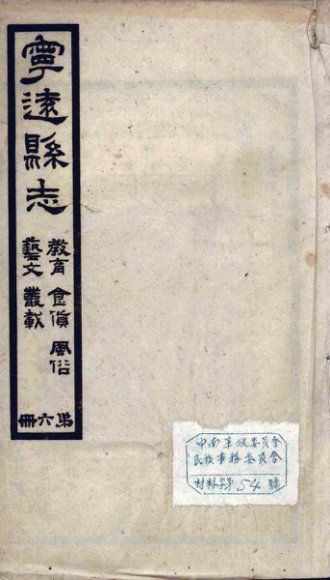 寧遠縣志
教育 食貨 風俗
藝文 叢載
第六冊
中南軍政委員會
民族事務委員會
材料字第54號